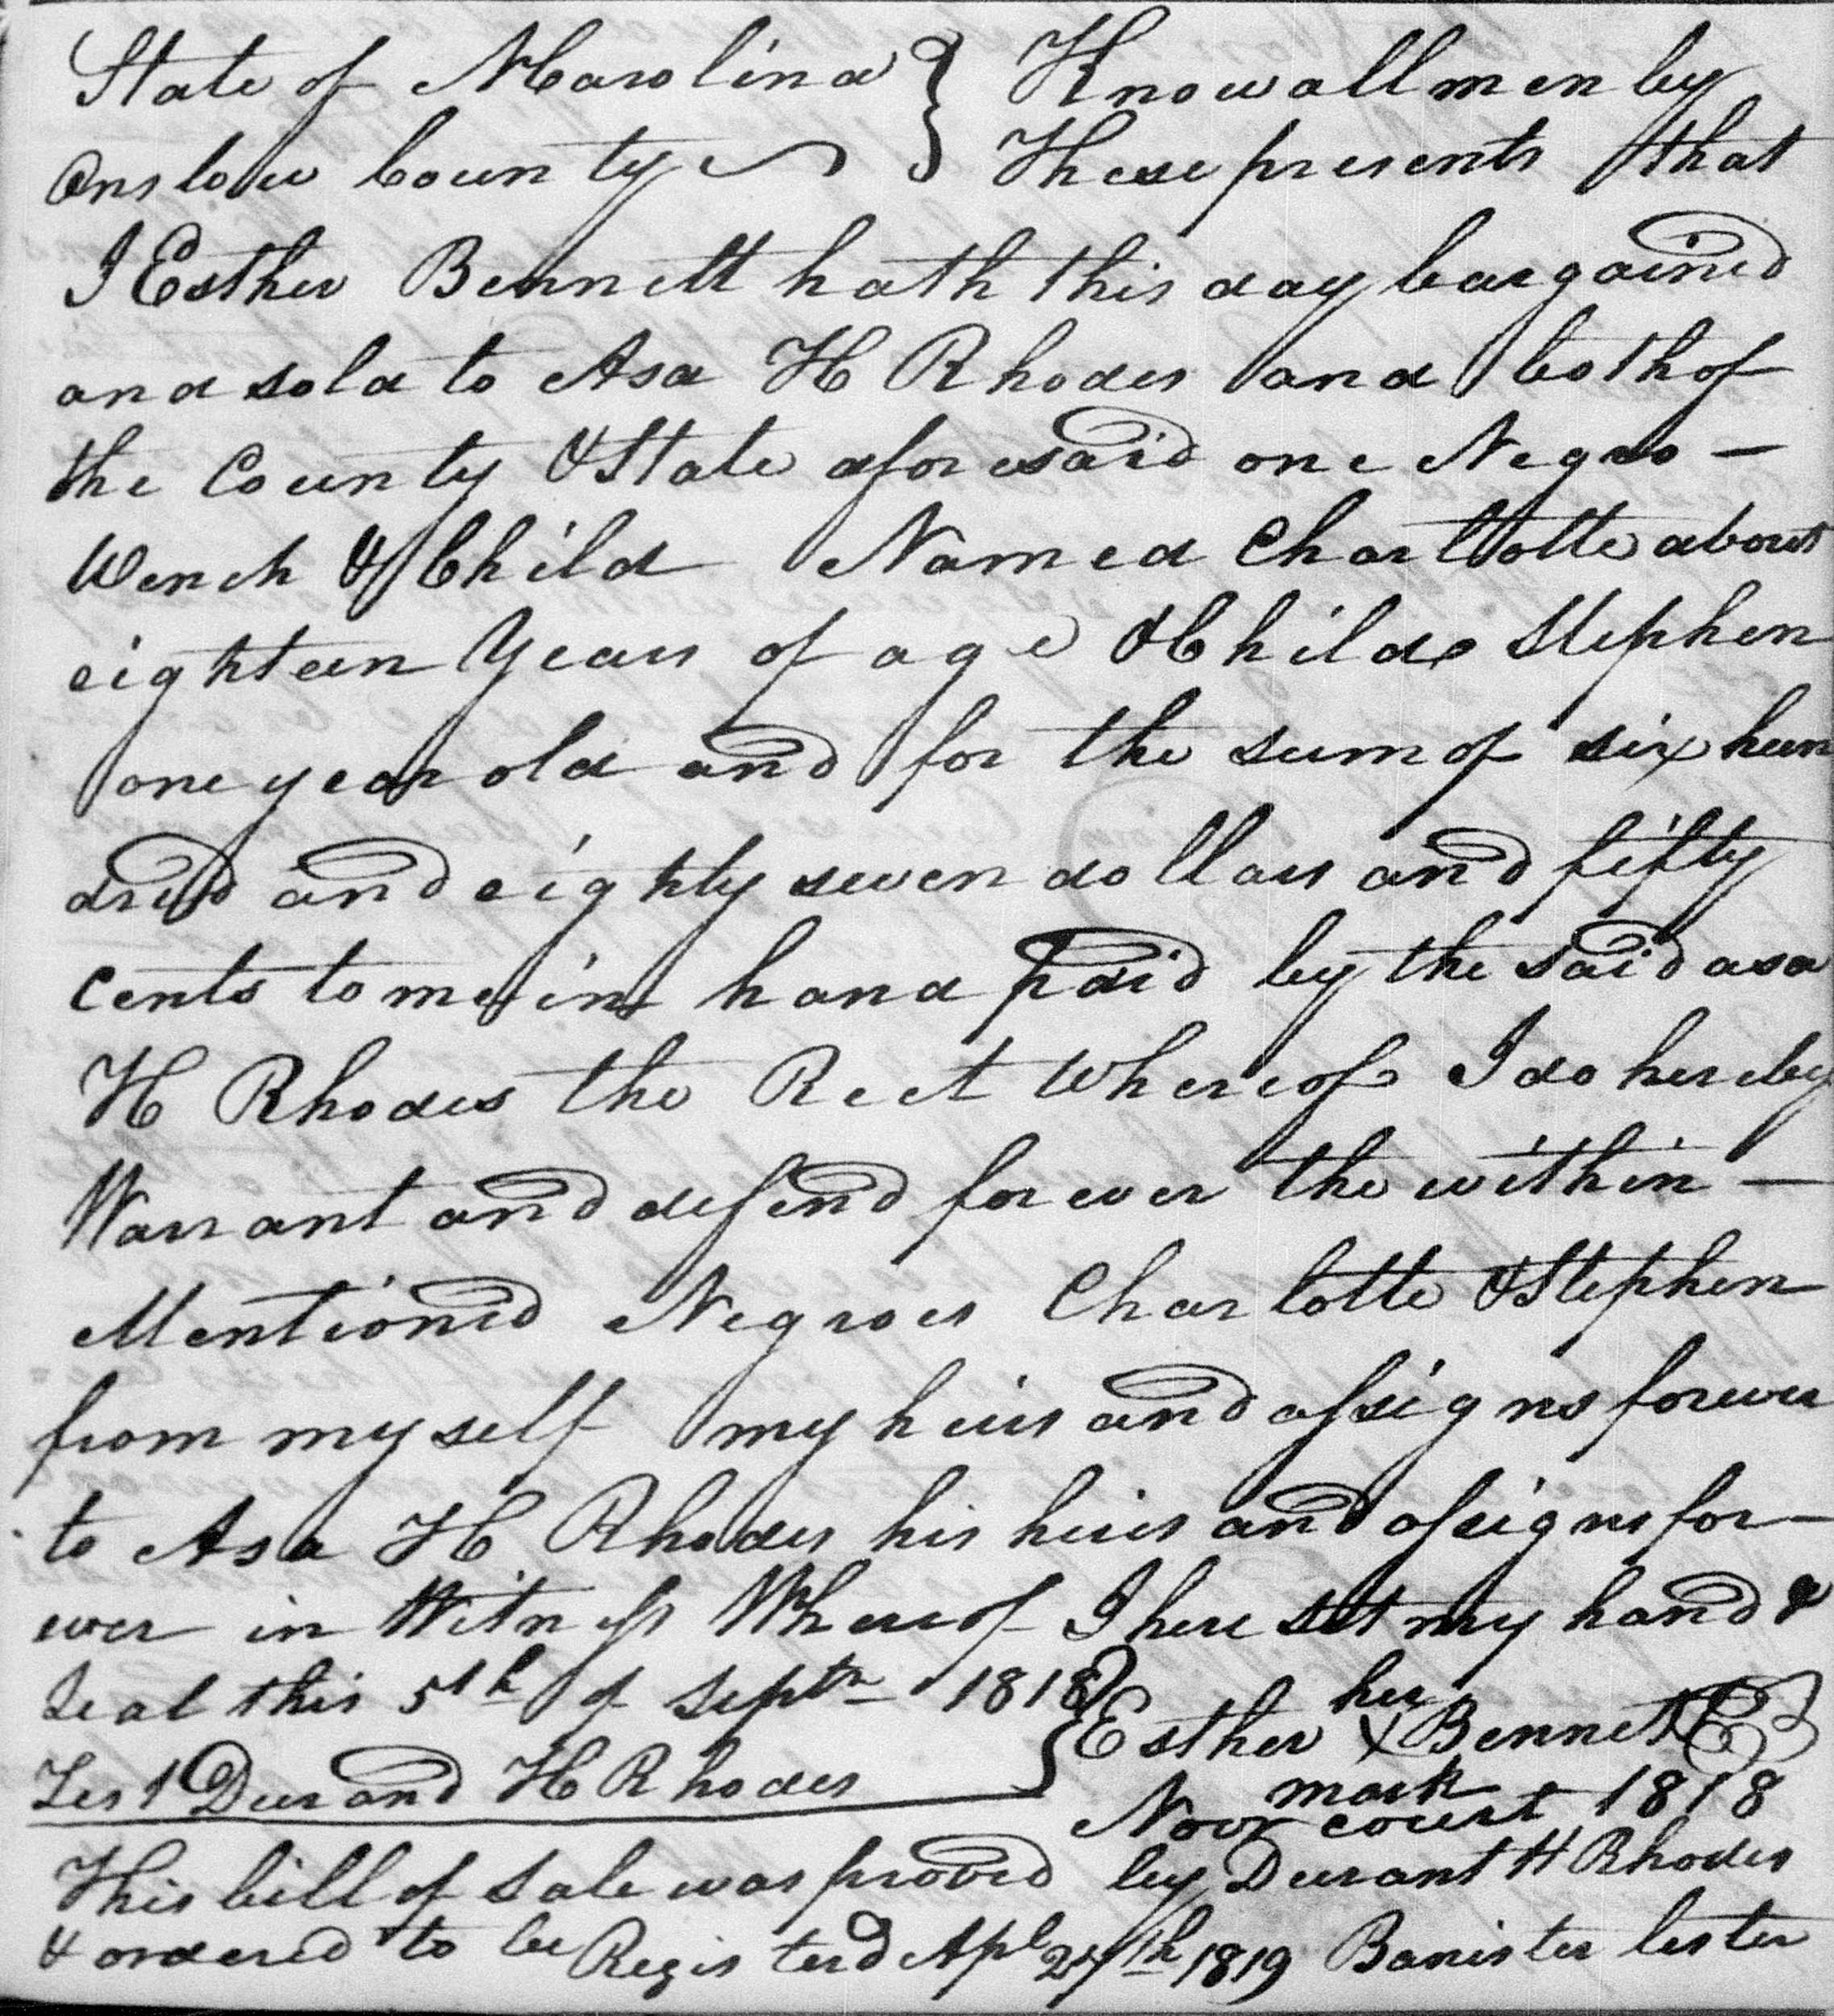 State of NCarolina } Know all men by
Onslow County } These presents that
I Esther Bennett hath this day bargained
and sold to Asa H Rhodes and both of
the County & State aforesaid one Negro —
Wench & Child Named Charlotte about
eighteen Years of age & Child Stephen
one year old and for the sum of six hun
dred and eighty seven dollars and fifty
Cents to me in hand paid by the said asa
H Rhodes the Rect Whereof I do hereby
Warrant and defend forever the within —
Mentioned Negroes Charlotte & Stephen
from myself my heirs and assigns forever
to Asa H Rhodes his heirs and assigns for—
ever in Witness Whereof I here set my hand &
Seal this 5th of Septr 1818
her
Esther X Bennett
mark
Test Durand H Rhodes
Novr court 1818
This bill of Sale was proved by Durant H Rhodes
& ordered to be Registerd Apl 27th 1819 Banister Lester